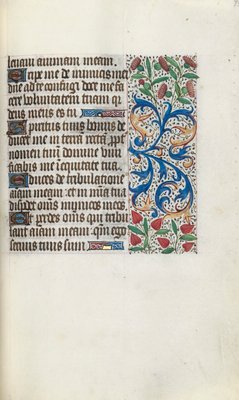 levavi animam meam.
Eripe me de inimicis meis
dne ad te confugi doce me fa
cere voluntatem tuam q̄
deus meus es tu
Spiritus tuus bonus de
ducet me in terra recta ꝓpt
nomen tuū domine vivi
ficabis me ī equitate tua.
Educes de tribulatione
aīam meam et in mīa tua
disꝑdes om̄s inimicos meos.
Et perdes om̄s qui tribu
lant aīam meam qm̄ ego
servus tuus sum